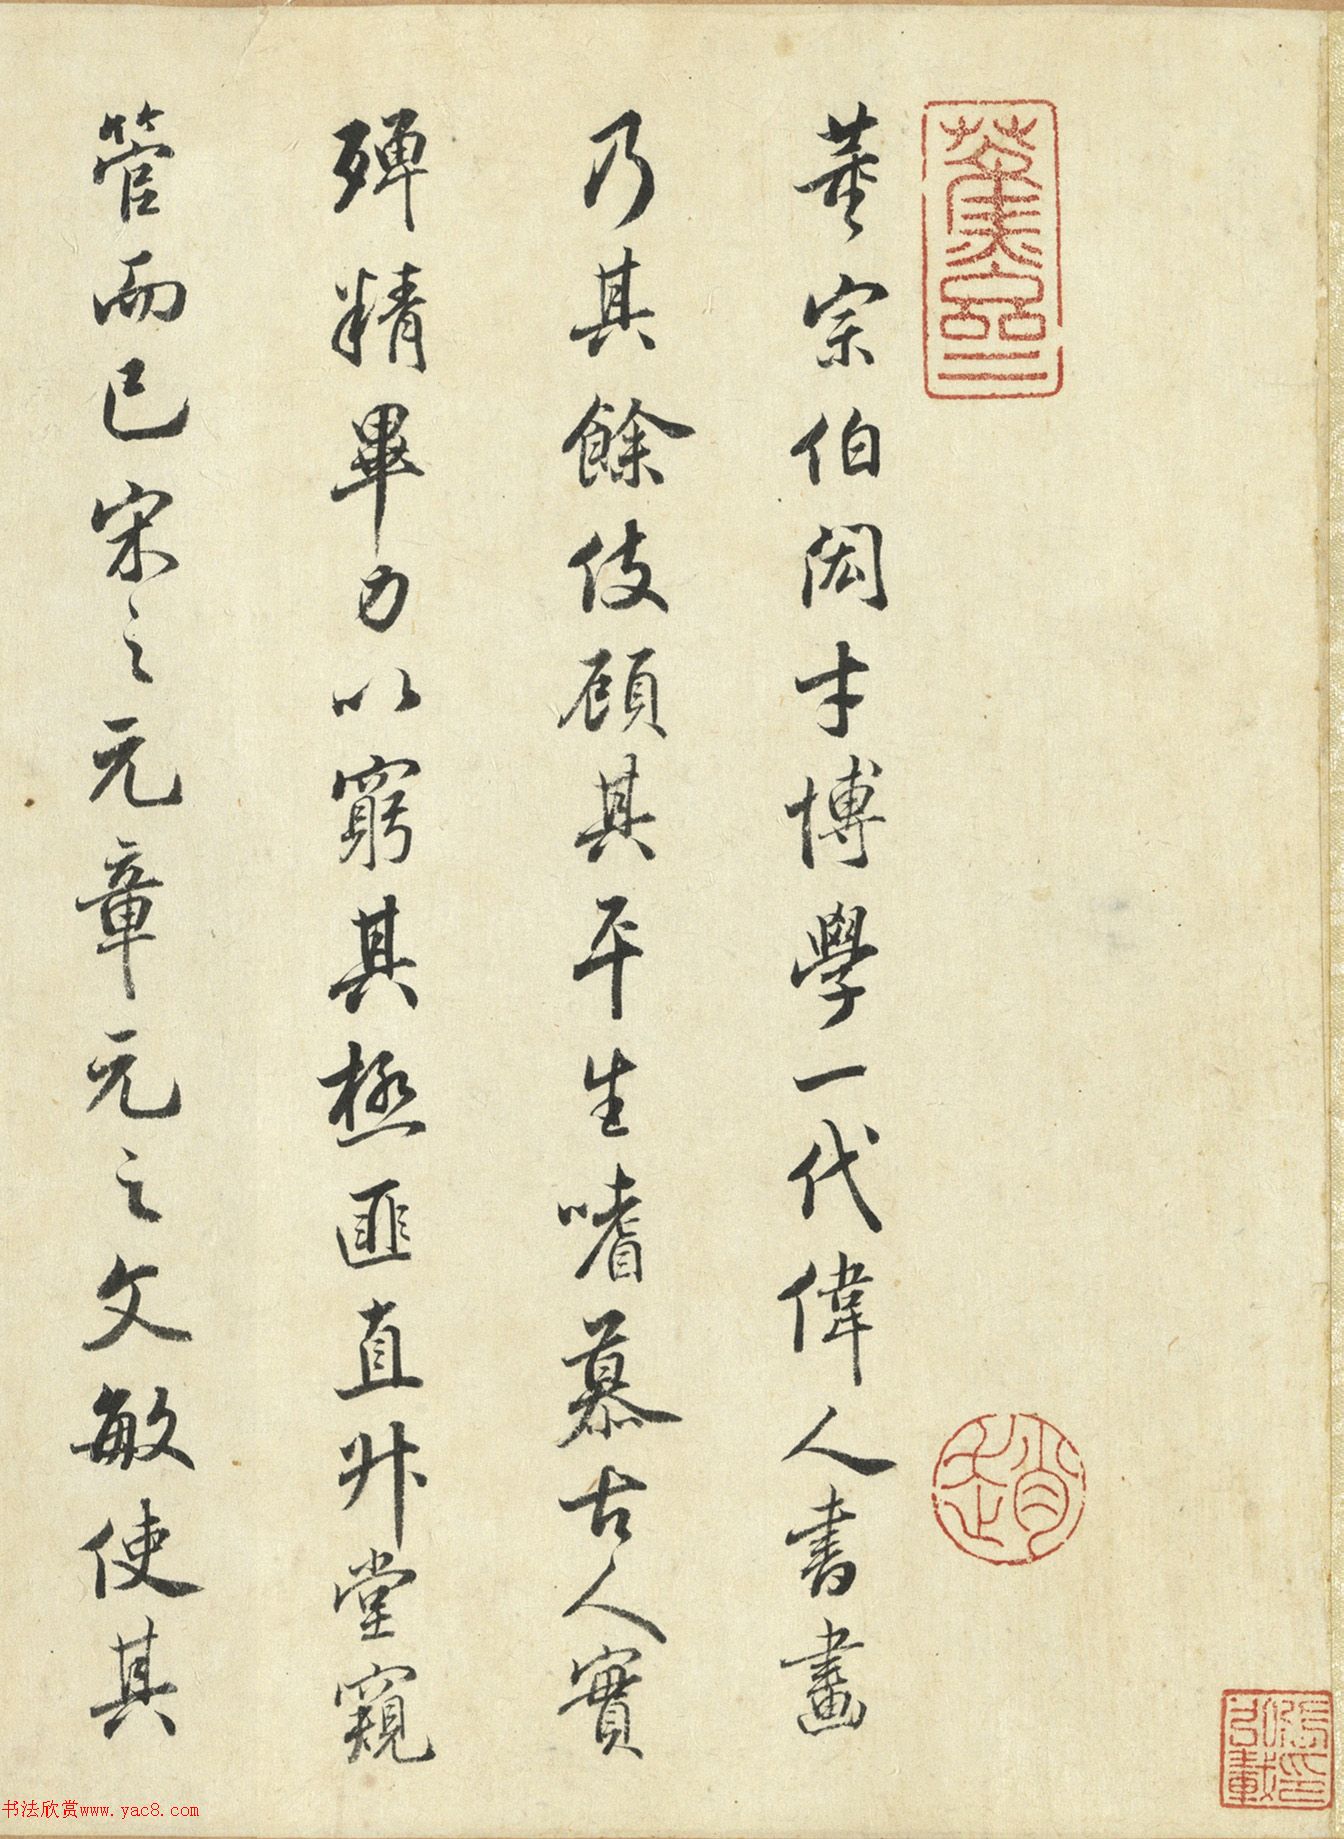 董宗伯閎才博學一代偉人書畫
乃其餘伎顧其平生嗜慕古人實
殫精畢力以窮其極匪直升堂窺
管而已宋之元章元之文敏使其
趙
书法欣赏www.yac8.com